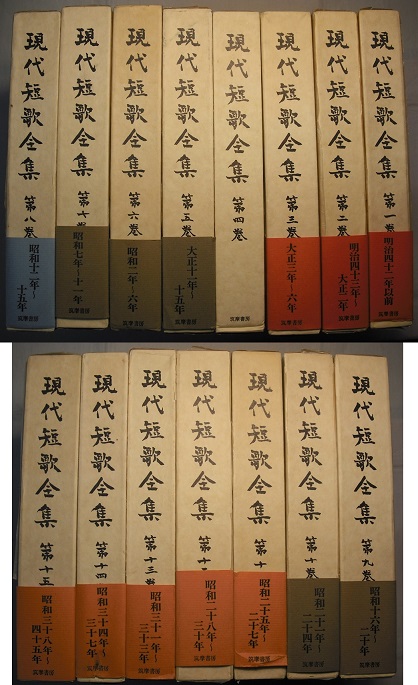 現代短歌全集 第一巻
明治四十二年以前
筑摩書房
現代短歌全集 第二巻
明治四十三年〜
大正二年
筑摩書房
現代短歌全集 第三巻
大正三年〜六年
筑摩書房
現代短歌全集 第四巻
筑摩書房
現代短歌全集 第五巻
大正十一年〜
十五年
筑摩書房
現代短歌全集 第六巻
昭和二年〜六年
筑摩書房
現代短歌全集 第七巻
昭和七年〜十一年
筑摩書房
現代短歌全集 第八巻
昭和十二年〜
十五年
筑摩書房
現代短歌全集 第九巻
昭和十六年〜
二十年
筑摩書房
現代短歌全集 第十巻
昭和二十一年〜
二十四年
筑摩書房
現代短歌全集 第十
昭和二十五年〜
二十七年
筑摩書房
現代短歌全集 第十二
昭和二十八年〜
三十年
筑摩書房
現代短歌全集 第十三巻
昭和三十一年〜
三十三年
筑摩書房
現代短歌全集 第十四
昭和三十四年〜
三十七年
筑摩書房
現代短歌全集 第十五
昭和三十八年〜
四十五年
筑摩書房